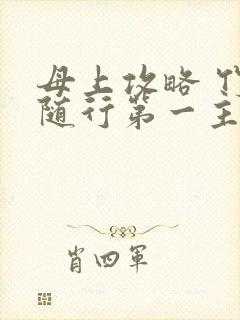 母上攻略
随行第一主
肖四军